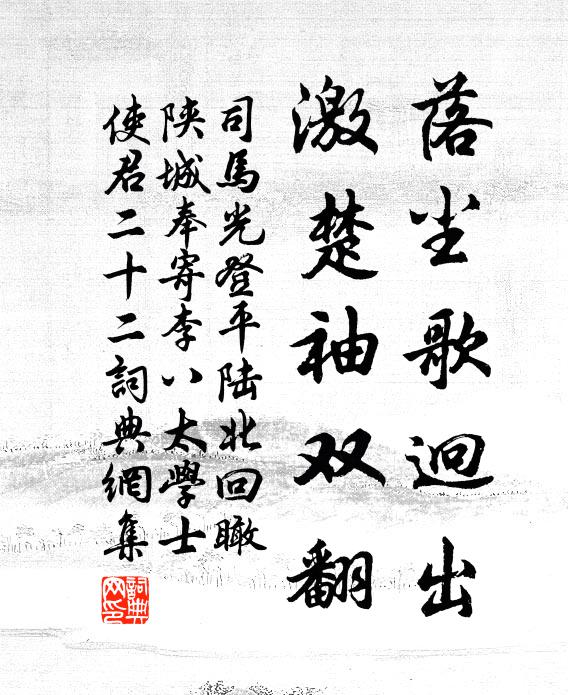 落尘歌迥出
激楚袖双翻
司馬光登平陆北回瞰
陕城奉寄李八太學士
使君二十二詞典網集
詞典网印